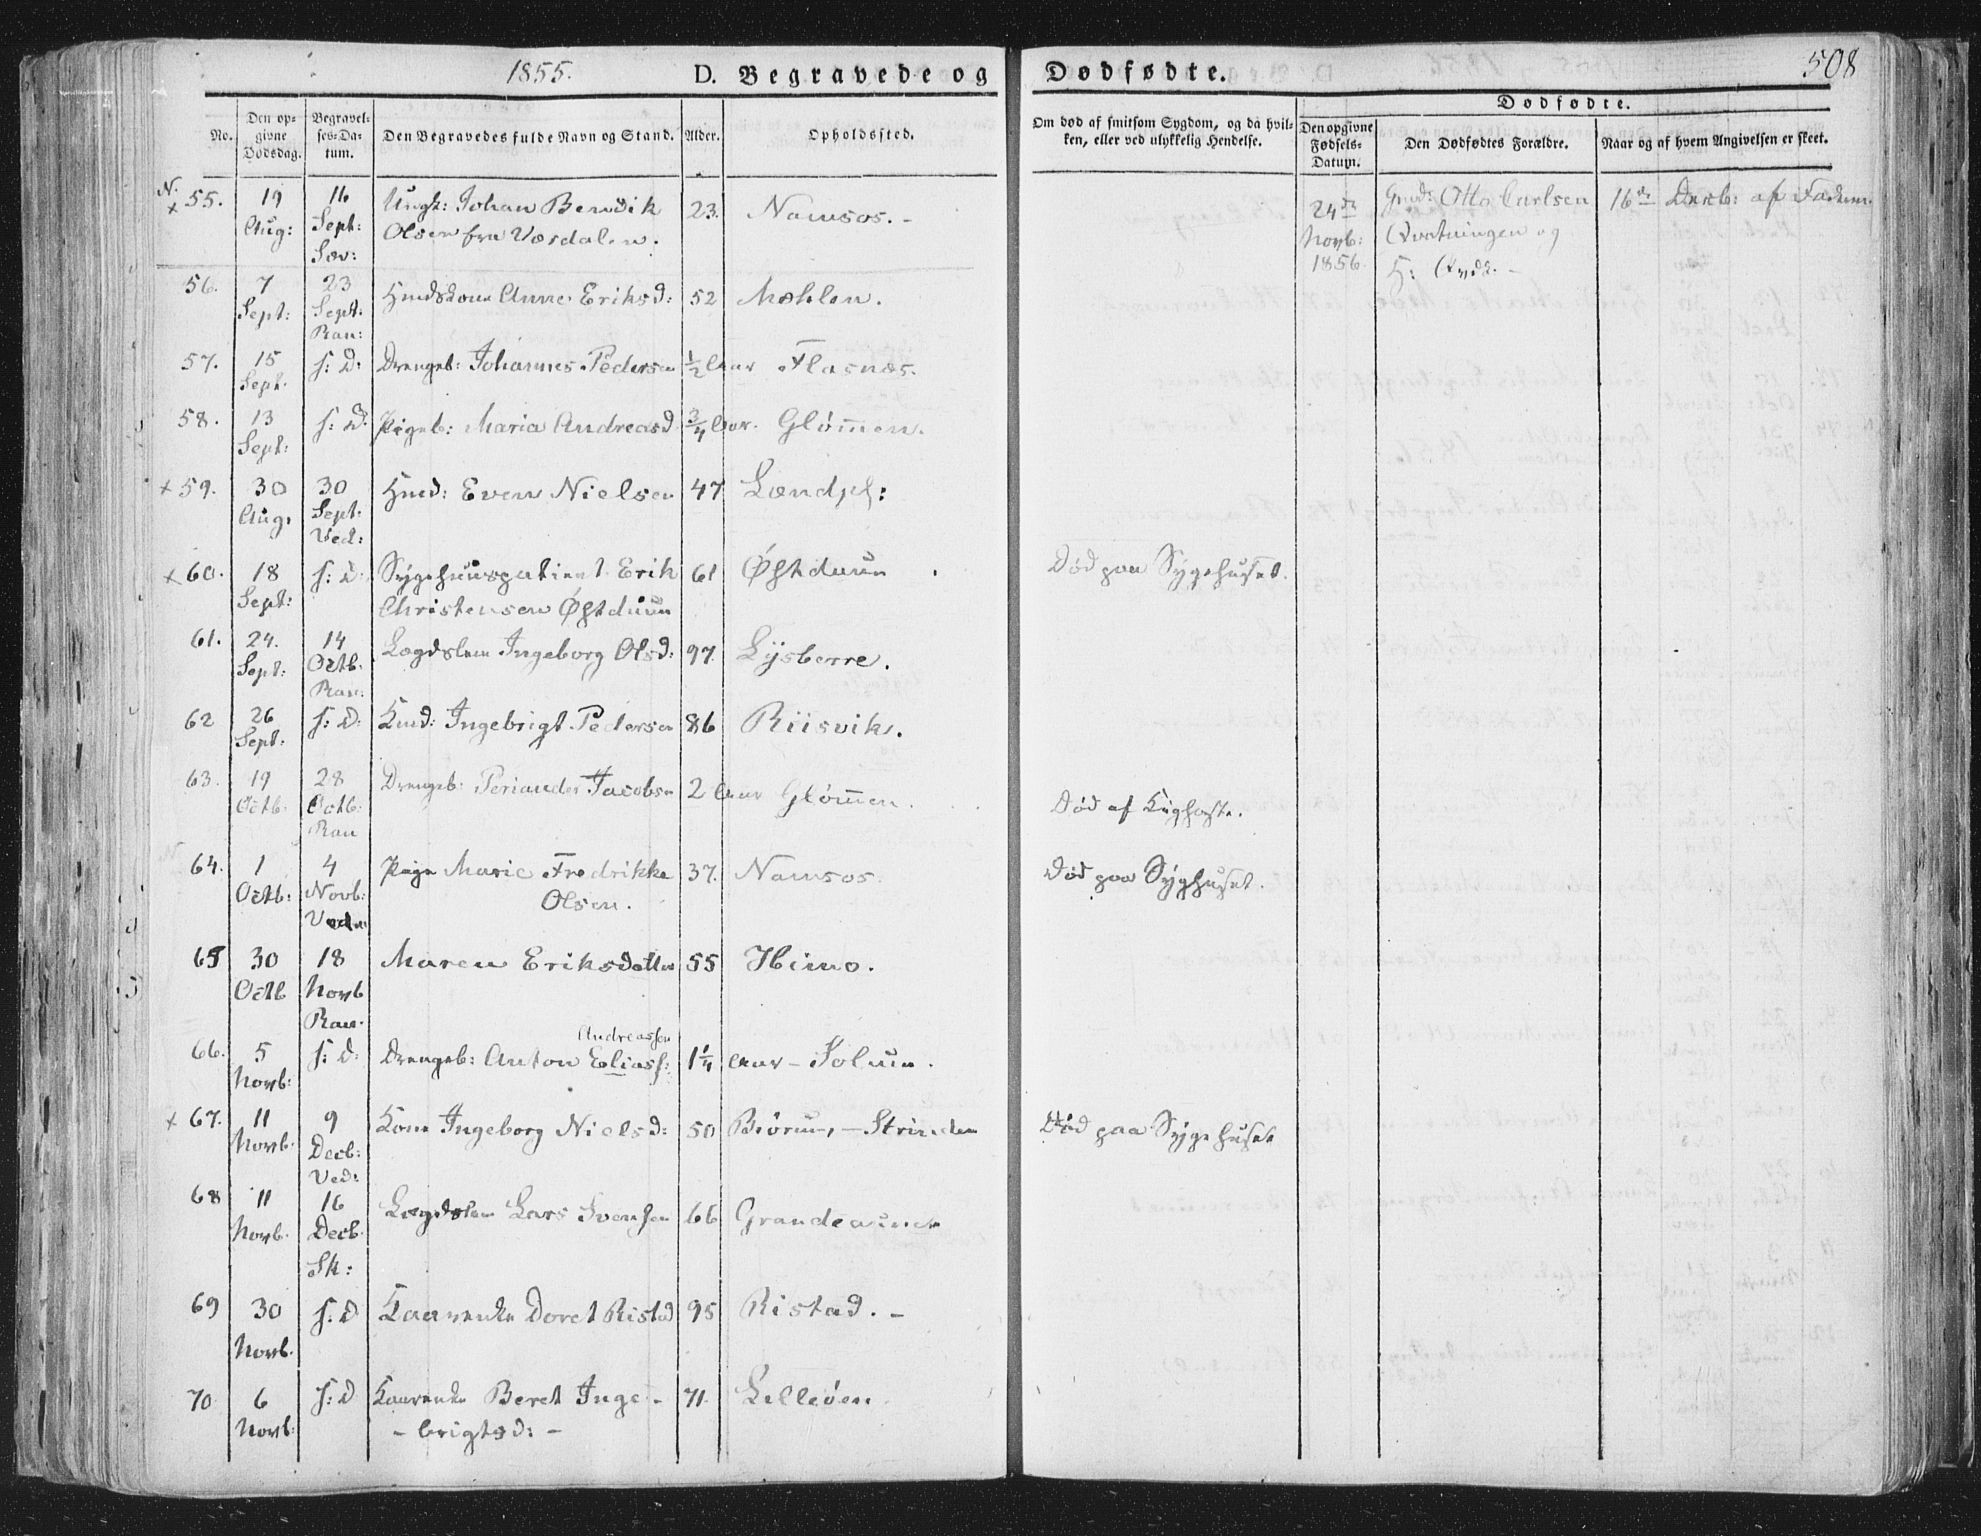 1855.
D. Begravede og Dødfødte.
508
No.
Den opgivne Dødsdag.
Begravelses-Datum.
Den Begravedes fulde Navn og Stand.
Alder.
Opholdssted.
Om død af smitsom Sygdom, og da hvilken, eller ved ulykkelig Hendelse.
Dødfødte.
Den opgivne Fødsels-Datum.
Den Dødfødtes Forældre.
Naar og af hvem Angivelsen er skeet.
N. × 55. 19 Aug: 16 Sept: Sæv: Ungk: Johan Bendik Olsen fra Værdalen. 23. Namsos. -
24de Novb: 1856. Gmd: Otto Carlsen Qvatningen og H: 16de Decb: af Faderen.
56. 7 Sept: 23 Sept: Ran: Hmdskone Anne Eriksd: 52 Mæhlen.
57. 15 Sept. s: D: Drengeb: Johannes Pedersen 1/2 Aar Flasnæs.
58. 13 Sept: s: D: Pigeb: Maria Andreasd 3/4 Aar. Glømmen.
× 59. 30 Aug. 30 Sept: Ved: Hmd: Even Nielsen 47
× 60. 18 Sept: s: D: Sygehuuspatient Erik Christensen Østduun 61 Østduun. Død paa Sygehuset.
61. 24. Sept: 14 Octb. Ran: Lægdslem Ingeborg Olsd: 97. Lysberre.
62 26 Sept: s: D: Kmd: Ingebrigt Pedersen 86 Riisvik.
63. 19 Octb. 28 Octb: Ran Drengeb: Periander Jacobsen 2 Aar Glømmen. Død af Kighoste.
64. 1 Octb: 4 Novb: Vedn Pige Marie Fredrikke Olsen. 37. Namsos. Død paa Syghuset.
65 30 Octb 18 Novb Ran. Maren Eriksdatter 55 Himo.
66. 5 Novb: s: D: Drengeb: Anton Eliass: Andreassen 1 1/4 Aar - Solum.
× 67. 11 Novb. 9 Decb: Ved: Kone Ingeborg Nielsd: 50 Biørum, - Strinden Død paa Sygehuset
68 11 Novb. 16 Decb. Sk: Lægdslem Lars Svensen 66 Grandeaunet
69 30 Novb. s: D Kaarenke Doret Ristad 95 Ristad. -
70 6 Novb. s: D Kaarenke Beret Inge-
- brigtsd: - 71. Lilleøen